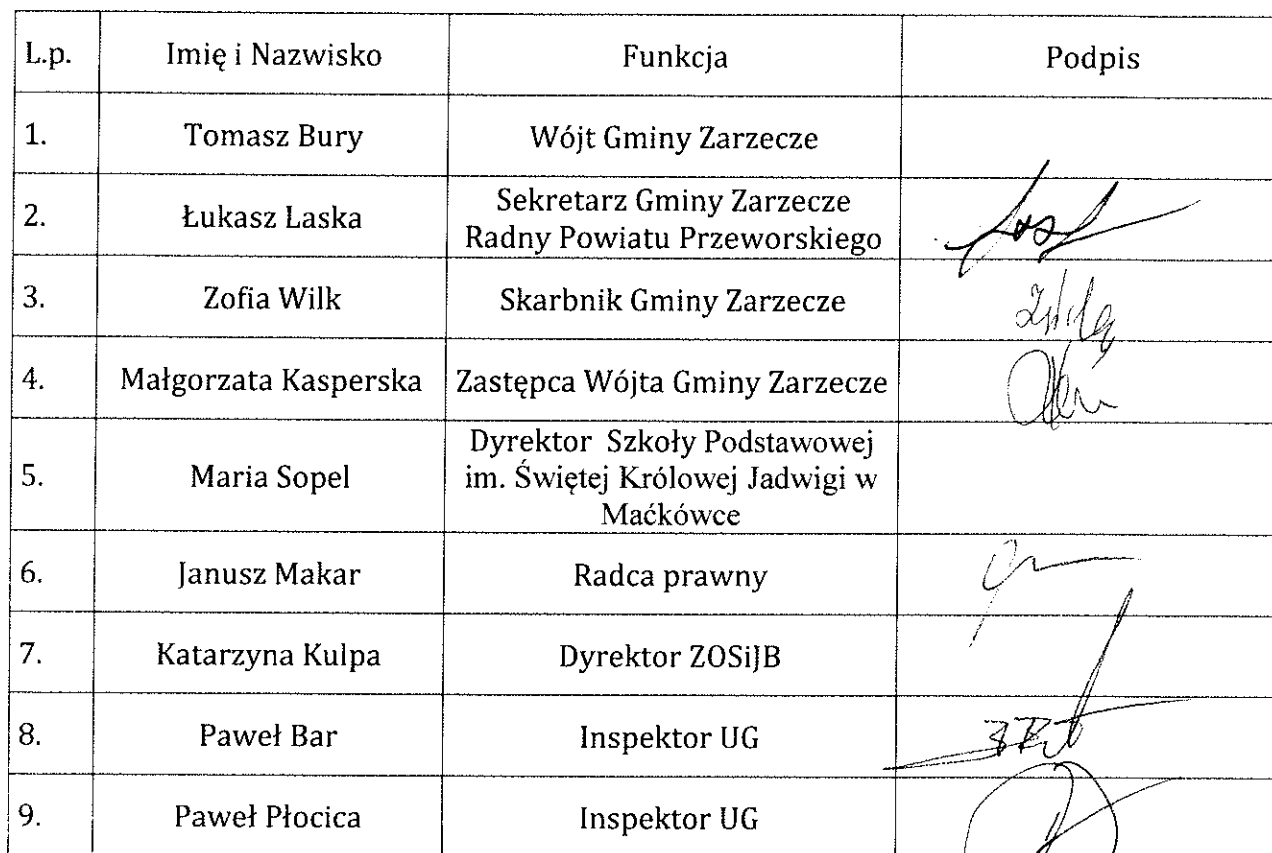 L.p. Imię i Nazwisko Funkcja Podpis
1. Tomasz Bury Wójt Gminy Zarzecze
2. Łukasz Laska Sekretarz Gminy Zarzecze
Radny Powiatu Przeworskiego
3. Zofia Wilk Skarbnik Gminy Zarzecze
4. Małgorzata Kasperska Zastępca Wójta Gminy Zarzecze
5. Maria Sopel Dyrektor Szkoły Podstawowej
im. Świętej Królowej Jadwigi w
Maćkówce
6. Janusz Makar Radca prawny
7. Katarzyna Kulpa Dyrektor ZOSiJB
8. Paweł Bar Inspektor UG
9. Paweł Płocica Inspektor UG